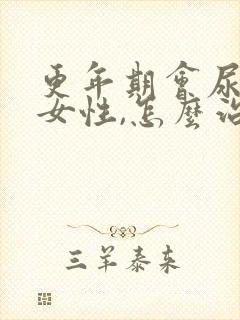 更年期會尿
女性,怎麼治
三羊泰来